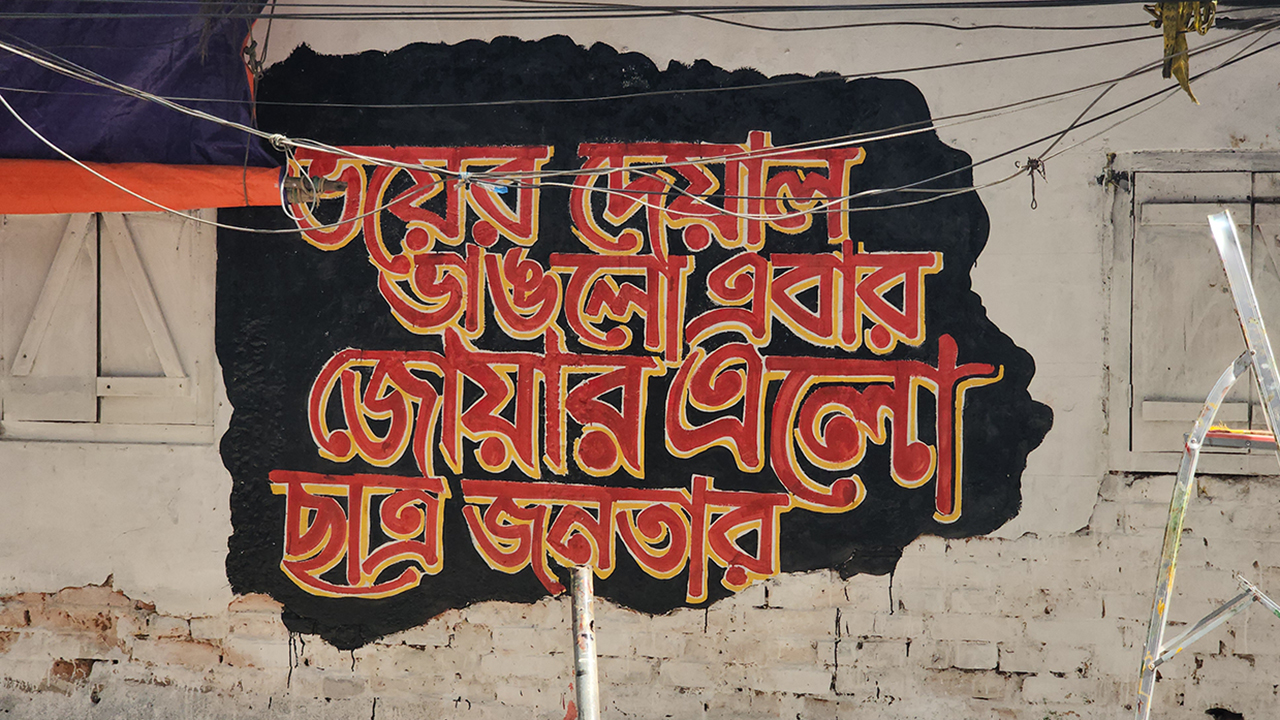 ভয়ের দেয়াল
ভাঙলো এবার
জোয়ার এলো
ছাত্র জনতার